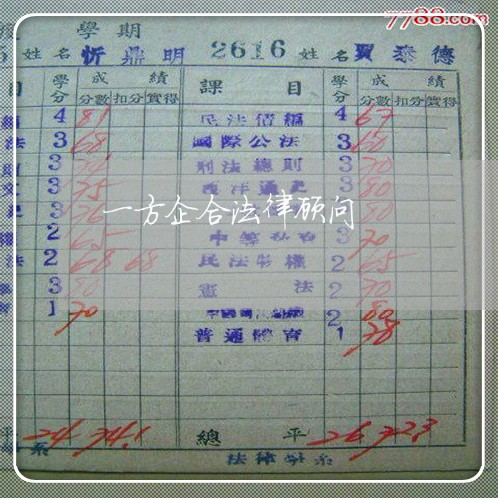 7788.com
學期
姓名 忻鼎明 2616 姓名 賈泰德
目 學分 成績 課目 學分 成績
分數 扣分 實得 分數 扣分 實得
4 81 民法債編 4 67
法 3 68 國際公法 3 60
3 刑法總則 3 70
3 75 西洋通史 3 80
3 76 3 80
一方企合法律顾问
2 65 中等 3 70
法 2 68 68 民法物權 2 65
3 80 憲法 2 70
1 70 2 80
普通體育 1 78
平 24 74.1 總平 26 72.3
系 法律學系